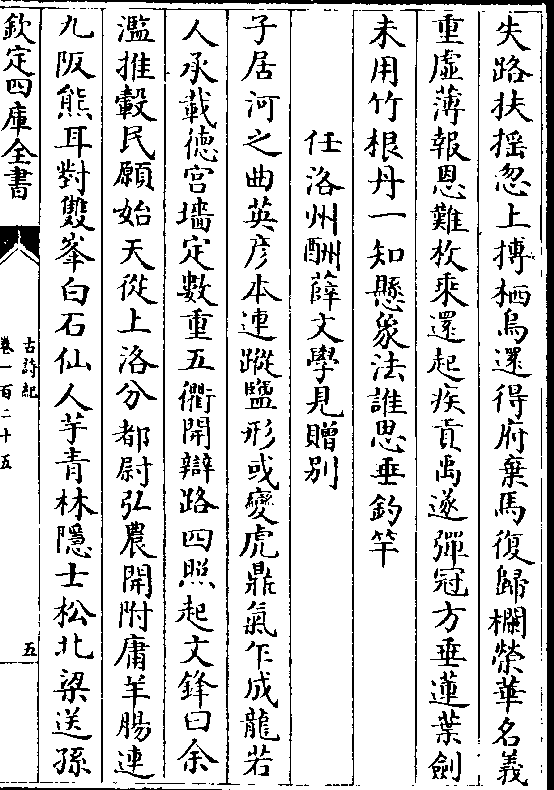 失路扶搖忽上摶栖烏還得府棄馬復歸欄榮華名義
重虛薄報恩難枚乘還起疾貢禹遂彈冠方垂蓮葉劍
未用竹根丹一知懸象法誰思垂釣竿
任洛州酬薛文學見贈别
子居河之曲英彦本連蹤鹽形或變虎鼎氣乍成龍若
人承載德宫墻定數重五衢開辯路四照起文鋒曰余
濫推轂民願始天從上洛分都尉弘農開附庸羊腸連
九阪熊耳對雙峯白石仙人芋青林隱士松北梁送孫
欽定四庫全書
古詩紀
卷一百二十五
五